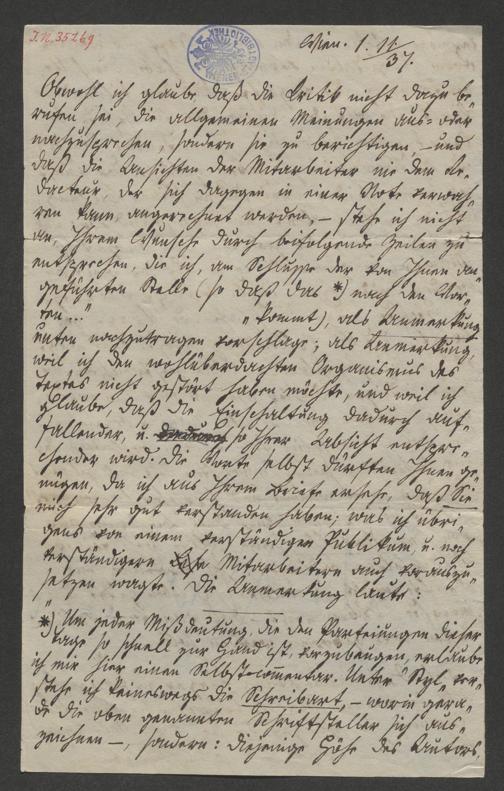 J.N. 35269
WIENER STADTBIBLIOTHEK
Wien. 1. 11/37.
Obwohl ich glaube daß die Kritik nicht dazu be-
rufen sei, die allgemeinen Meinungen aus- oder
nachzusprechen, sondern sie zu berichtigen, – und
daß die Ansichten der Mitarbeiter nie dem Re-
dacteur, der sich dagegen in einer Not. verwah-
ren kann, angerechnet werden, – stehe ich nicht
an, Ihrem Wunsche durch beifolgende Zeilen zu
entsprechen, die ich, am Schlusse der von Ihnen an-
geführten Stelle (so daß das *) nach den Wor-
ten „..." kommt), als Anmerkung
unten nachzutragen vorschlage; als Anmerkung,
weil ich den wohlüberdachten Organismus des
Textes nicht gestört haben möchte, und weil ich
glaube, daß die Einschaltung dadurch auf-
fallender, u. so Ihrer Absicht entspre-
chender wird. Die Worte selbst dürften Ihnen ge-
nügen, da ich aus Ihrem Briefe ersehe, daß Sie
mich sehr gut verstanden haben; was ich übri-
gens von einem verständigen Publikum, u. noch
verständigern Mitarbeitern auch vorauszu-
setzen wagte. Die Anmerkung laute:
"*) Um jeder Mißdeutung, die den Parteiungen dieser
Tage so schnell zur Hand ist, vorzubeugen, erlaube
ich mir hier einen Selbst-commentar. Unter "Styl" ver-
stehe ich keineswegs die Schreibart, – worin gera-
de die oben genannten Schriftsteller sich aus-
zeichnen –, sondern: diejenige Höhe des Autors,